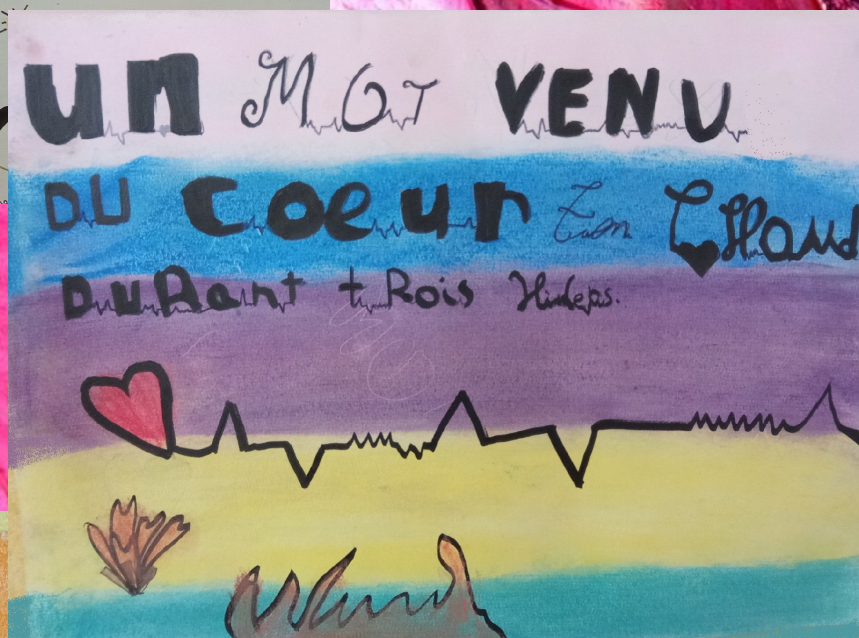 un MOT VENU
DU coeur Ton CHaud
DuRant tRois Hivers.